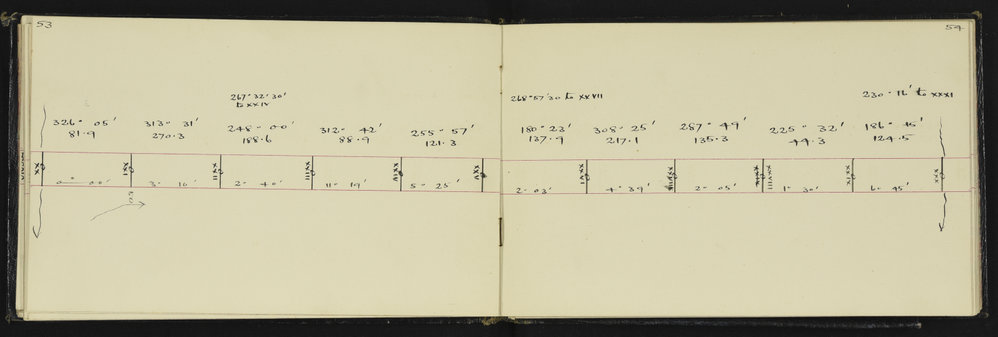 53
267° 32' 30"
to XXIV
326° 05'
81.9
313° 31'
270.3
248° 00'
188.6
312° 42'
88.9
255° 57'
121.3
XX
XXI
XXII
XXIII
XXIV
XXV
0° 00'
3° 10'
2° 40'
11° 19'
5° 25'
54
268° 57' 30 to XXVII
230° 16' to XXXI
180° 23'
137.9
308° 25'
217.1
257° 49'
135.3
225° 32'
49.3
186° 45'
124.5
XXVI
XXVIII
XXIX
XXX
2° 03'
4° 39'
2° 05'
1° 30'
6° 45'